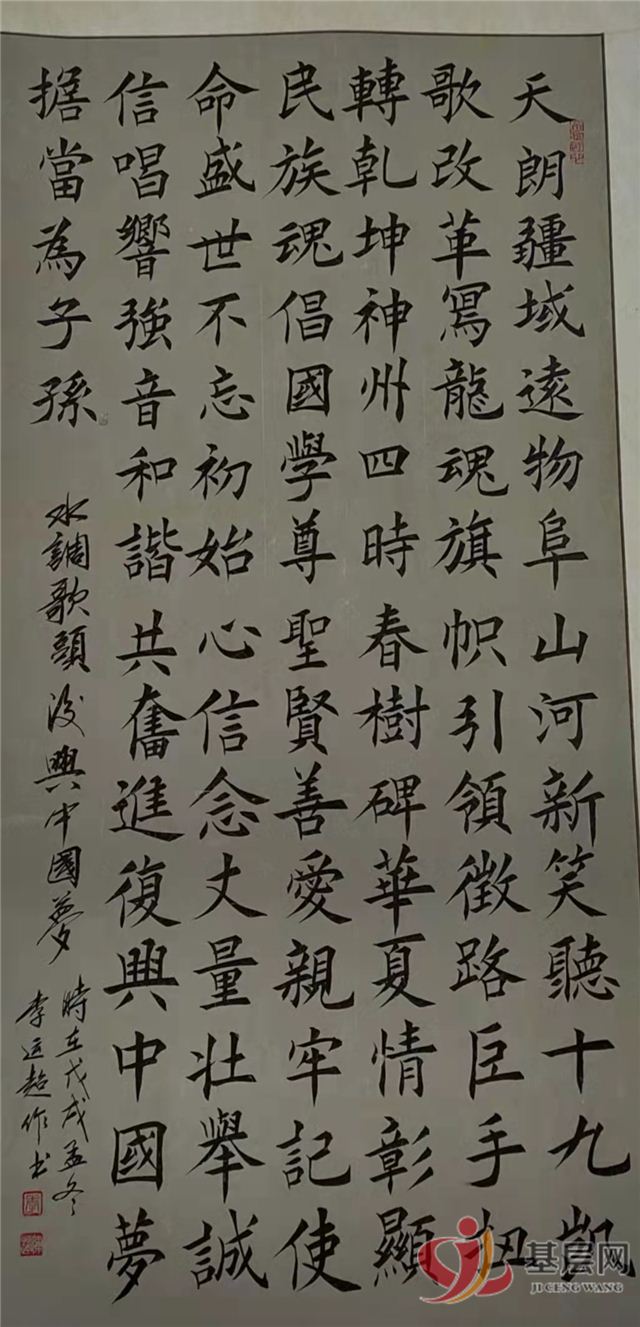 天朗疆域遠物阜山河新笑聽十九凱
歌改革寫龍魂旗帜引領徵路巨手扭
轉乾坤神州四時春樹碑華夏情彰顯
民族魂倡國學尊聖賢善愛親牢記使
命盛世不忘初始心信念丈量壯舉誠
信唱響強音和諧共奮進復興中國夢
擔當為子孫
水調歌頭復興中國夢
時在戊戌孟冬
李运超作书
基层网
JI CENG WANG